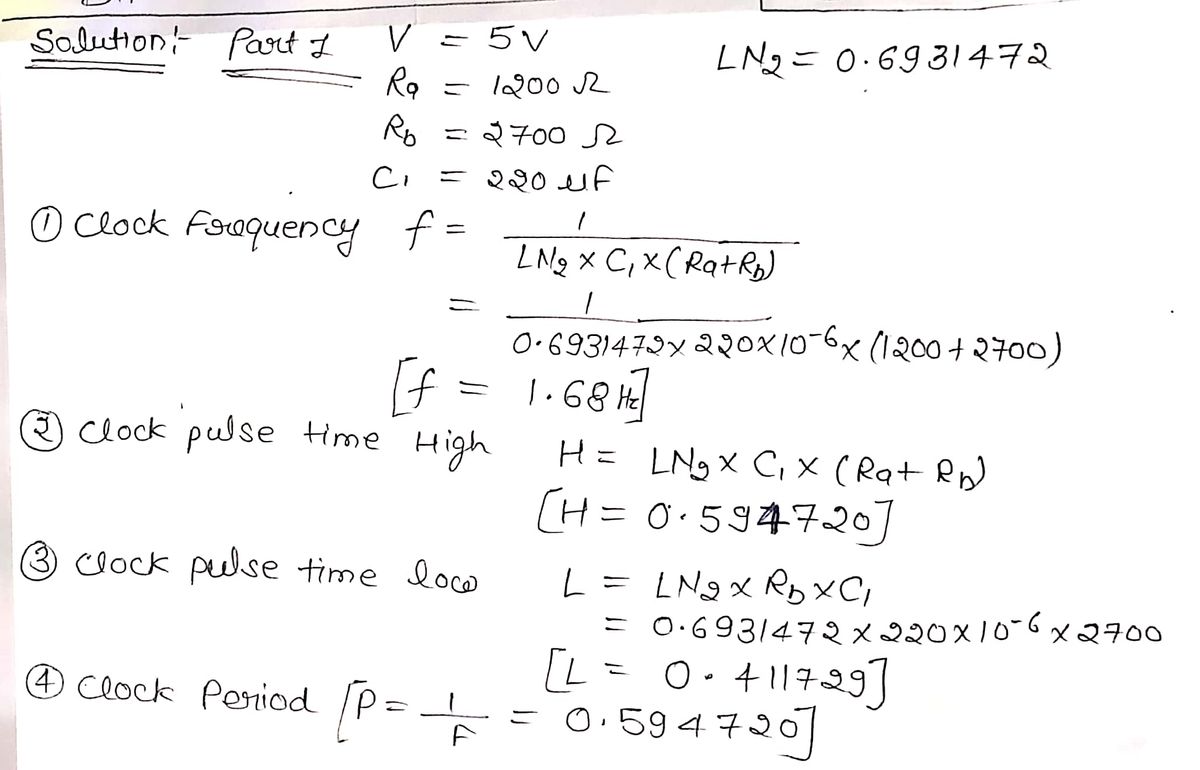 Solution:- Part 1 V = 5V LN2 = 0.6931472
Ra = 1200 Ω
Rb = 2700 Ω
C1 = 220 uf
① Clock Frequency f = 1 / LN2 x C1 x (Ra+Rb)
= 1 / 0.6931472 x 220x10-6 x (1200 + 2700)
[f = 1.68 Hz]
② Clock pulse time High H = LN2 x C1 x (Ra + Rb)
[H = 0.594720]
③ clock pulse time low L = LN2 x Rb x C1
= 0.6931472 x 220x10-6 x 2700
[L = 0.411729]
④ clock Period [P = 1 / F = 0.594720]